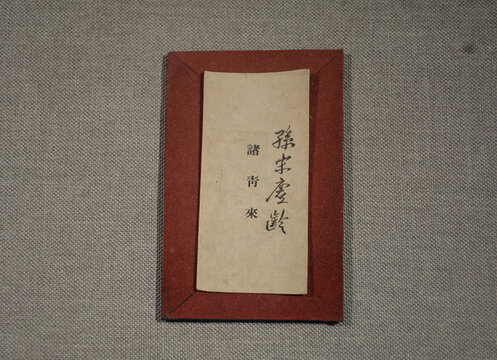 孫宋慶齡
諸青來